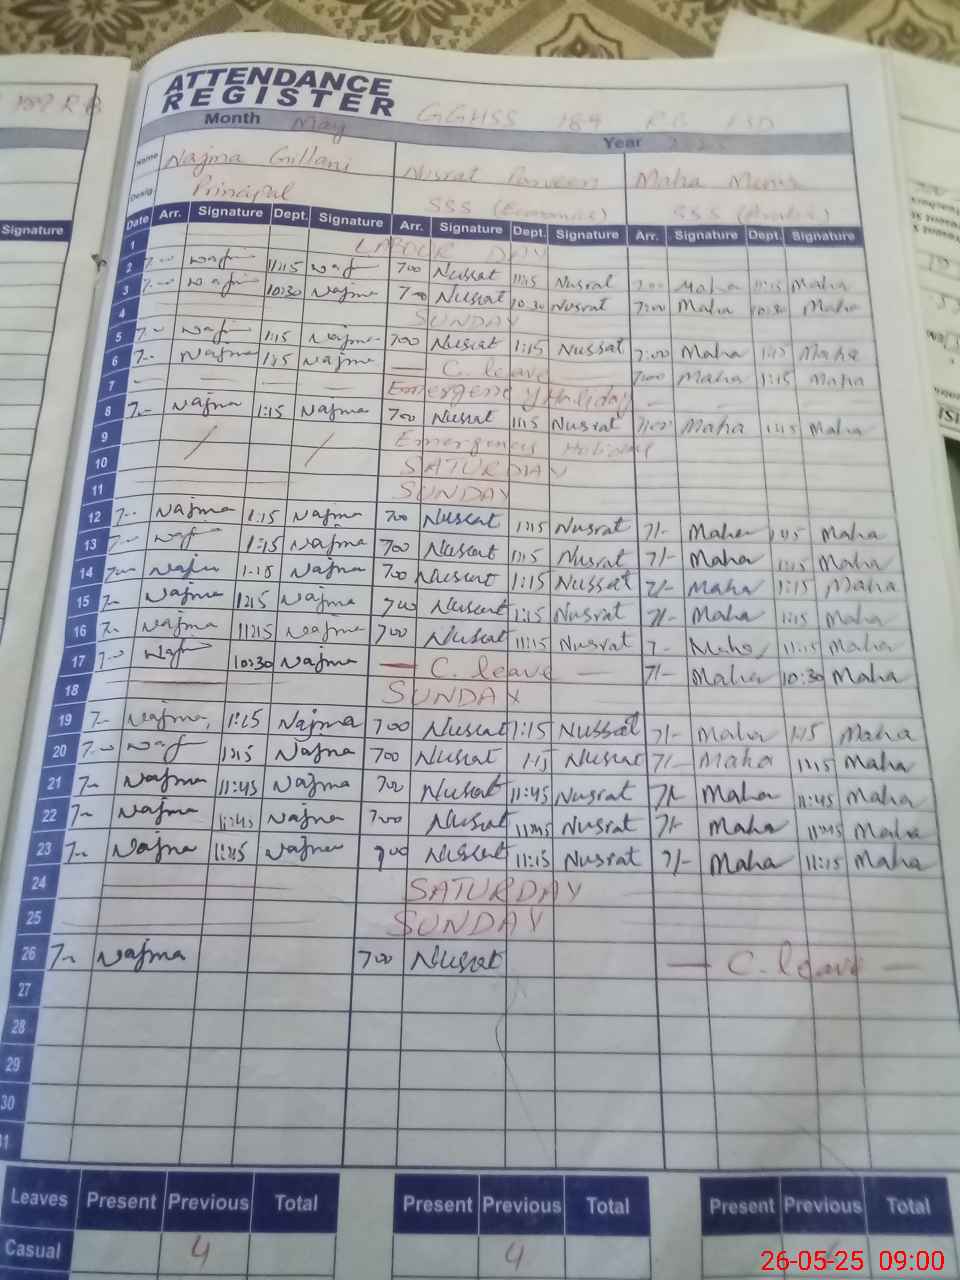 ATTENDANCE
REGISTER
GGHSS 189 RB FSD
Month May Year
Name Najma Gillani Nusrat Parveen Maha
Desig. Principal SSS (Economics) SSS
Date Arr. Signature Dept. Signature Arr. Signature Dept. Signature Arr. Signature Dept. Signature
1 LABOUR DAY
2 7-00 Naj 11:15 Naj 700 Nusrat 11:15 Nusrat 7:00 Maha 11:15 Maha
3 7-00 Naj 10:30 Najma 700 Nusrat 10:30 Nusrat 7:00 Maha 10:30 Maha
4 SUNDAY
5 7-00 Naj 1:15 Najma 700 Nusrat 1:15 Nusrat 7:00 Maha 1:15 Maha
6 7-- Najma 1:15 Najma — C. leave — 7:00 Maha 1:15 Maha
7 Emergency Holiday
8 7-- Najma 1:15 Najma 700 Nusrat 1:15 Nusrat 7:00 Maha 1:15 Maha
9 Emergency Holiday
10 SATURDAY
11 SUNDAY
12 7-- Najma 1:15 Najma 700 Nusrat 1:15 Nusrat 7/- Maha 1:15 Maha
13 7-- Naj 1:15 Najma 700 Nusrat 1:15 Nusrat 7/- Maha 1:15 Maha
14 7-00 Najma 1:15 Najma 700 Nusrat 1:15 Nusrat 7/- Maha 1:15 Maha
15 7-- Najma 1:15 Najma 700 Nusrat 1:15 Nusrat 7/- Maha 1:15 Maha
16 7-- Najma 11:15 Najma 700 Nusrat 11:15 Nusrat 7- Maha 11:15 Maha
17 7-00 Naj 10:30 Najma — C. leave — 7/- Maha 10:30 Maha
18 SUNDAY
19 7-- Najma 1:15 Najma 700 Nusrat 1:15 Nusrat 7/- Maha 1:15 Maha
20 7-00 Naj 1:15 Najma 700 Nusrat 1:15 Nusrat 7/- Maha 1:15 Maha
21 7-- Najma 11:45 Najma 700 Nusrat 11:45 Nusrat 7/- Maha 11:45 Maha
22 7-- Najma 11:45 Najma 700 Nusrat 11:45 Nusrat 7/- Maha 11:45 Maha
23 7-- Najma 11:15 Najma 700 Nusrat 11:15 Nusrat 7/- Maha 11:15 Maha
24 SATURDAY
25 SUNDAY
26 7-- Najma 700 Nusrat — C. leave —
27
28
29
30
31
Leaves Present Previous Total Present Previous Total Present Previous Total
Casual 4 4
Signature
26-05-25 09:00